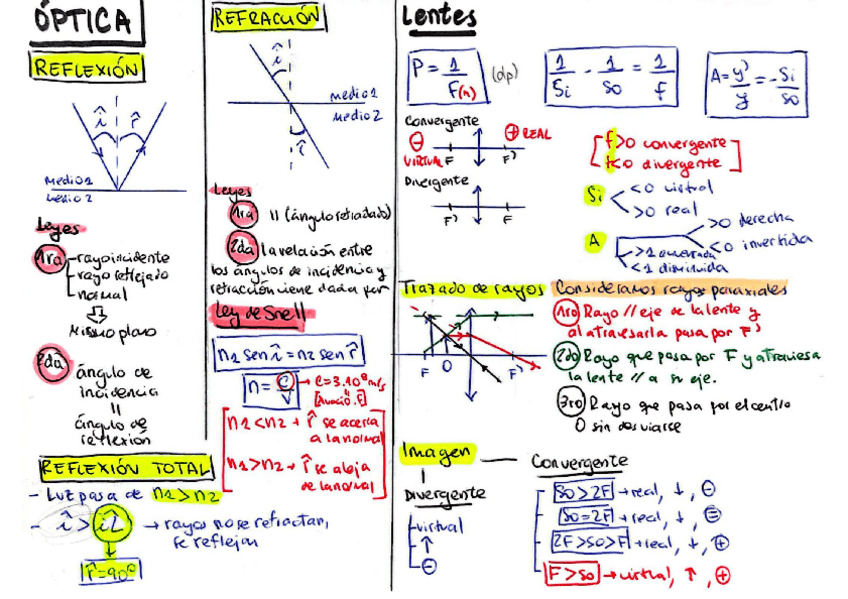 ÓPTICA
REFLEXIÓN
î r̂
medio 1
medio 2
Leyes
1ra rayo incidente
rayo reflejado
normal
Mismo plano
2da ángulo de
incidencia
||
ángulo de
reflexión
REFLEXIÓN TOTAL
- Luz pasa de n1 > n2
- î > îL → rayos no se refractan,
se reflejan
r̂ = 90°
REFRACCIÓN
î
medio 1
medio 2
r̂
Leyes
1ra || (ángulo refractado)
2da La relación entre
los ángulos de incidencia y
refracción viene dada por
Ley de Snell
n1 sen î = n2 sen r̂
n = c/v → c = 3·10⁸ m/s
n1 < n2 → r̂ se acerca
a la normal
n1 > n2 → r̂ se aleja
de la normal
Lentes
P = 1/F(m) (dp)
1/Si - 1/So = 1/f
A = y'/y = -Si/So
Convergente
⊖ ⊕ REAL
VIRTUAL F F'
Divergente
F' F
f>0 convergente
f<0 divergente
Si <0 virtual
>0 real
A >0 derecha
<0 invertida
>1 aumentada
<1 disminuida
Trazado de rayos Consideramos rayos paraxiales
F O F'
1ro Rayo // eje de la lente y
al atravesarla pasa por F'
2do Rayo que pasa por F y atraviesa
la lente // a su eje.
3ro Rayo que pasa por el centro
O sin desviarse
Imagen
Divergente
virtual
↑
⊖
Convergente
So > 2F → real, ↓, ⊖
So = 2F → real, ↓, ⊜
2F > So > F → real, ↓, ⊕
F > So → virtual, ↑, ⊕